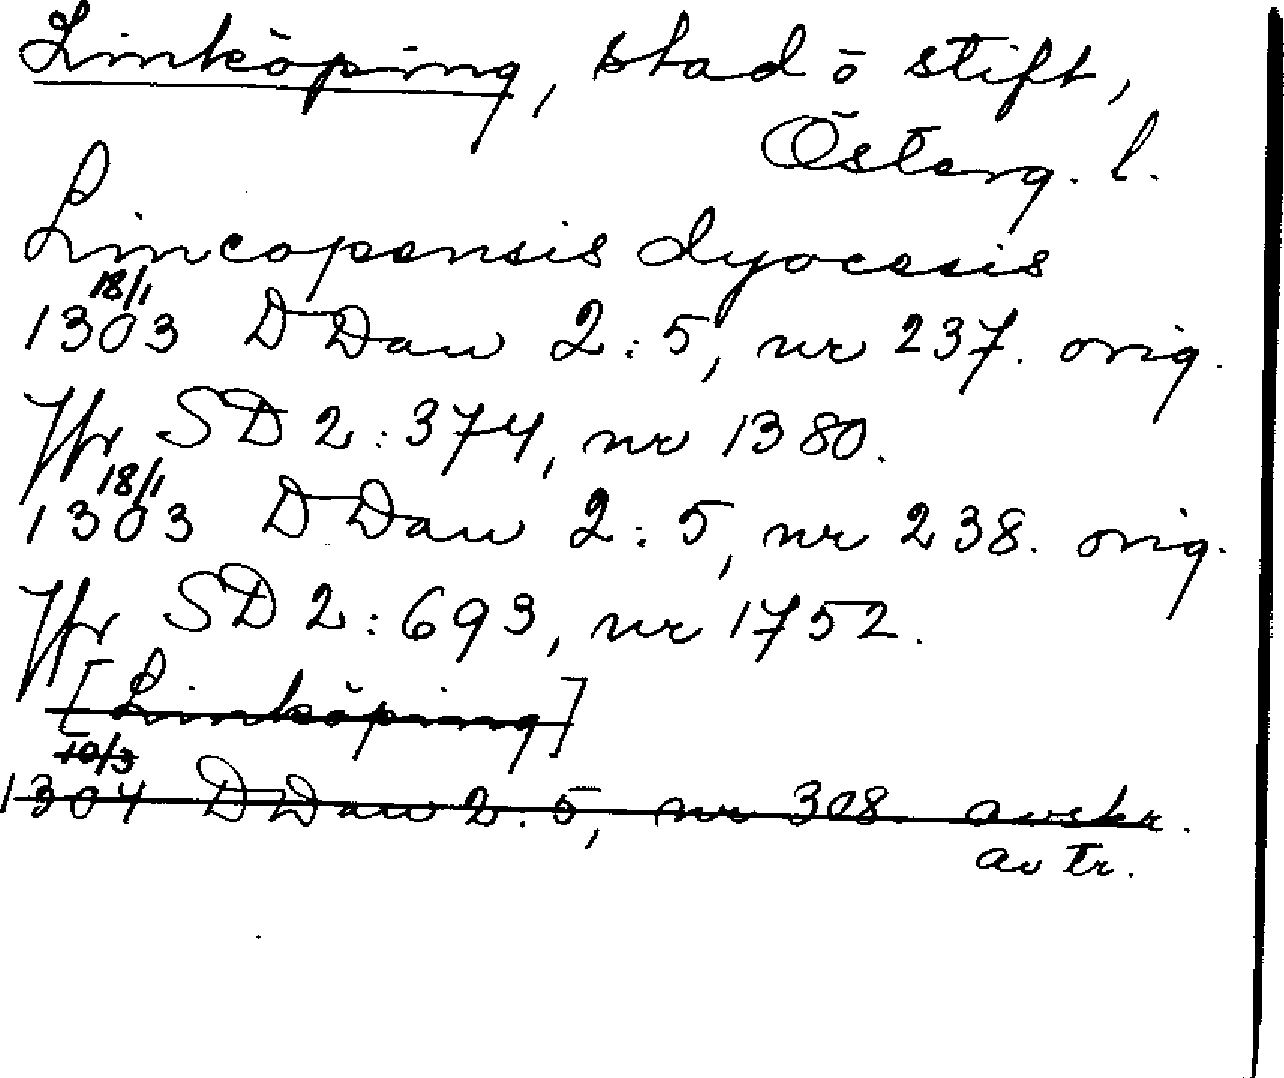 Linköping, stad o stift,
Österg. l.
Lincopensis dyocesis
18/1
1303 DDan 2:5, nr 237. orig.
Jfr SD 2:374, nr 1380.
18/1
1303 DDan 2:5, nr 238. orig.
Jfr SD 2:693, nr 1752.
[Linköping]
10/3
1304 DDan 2:5, nr 308. avskr.
av tr.